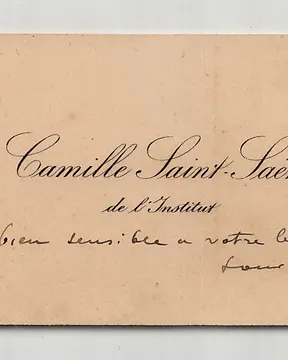 Camille Saint-Saë
de l'Institut
bien sensible a votre